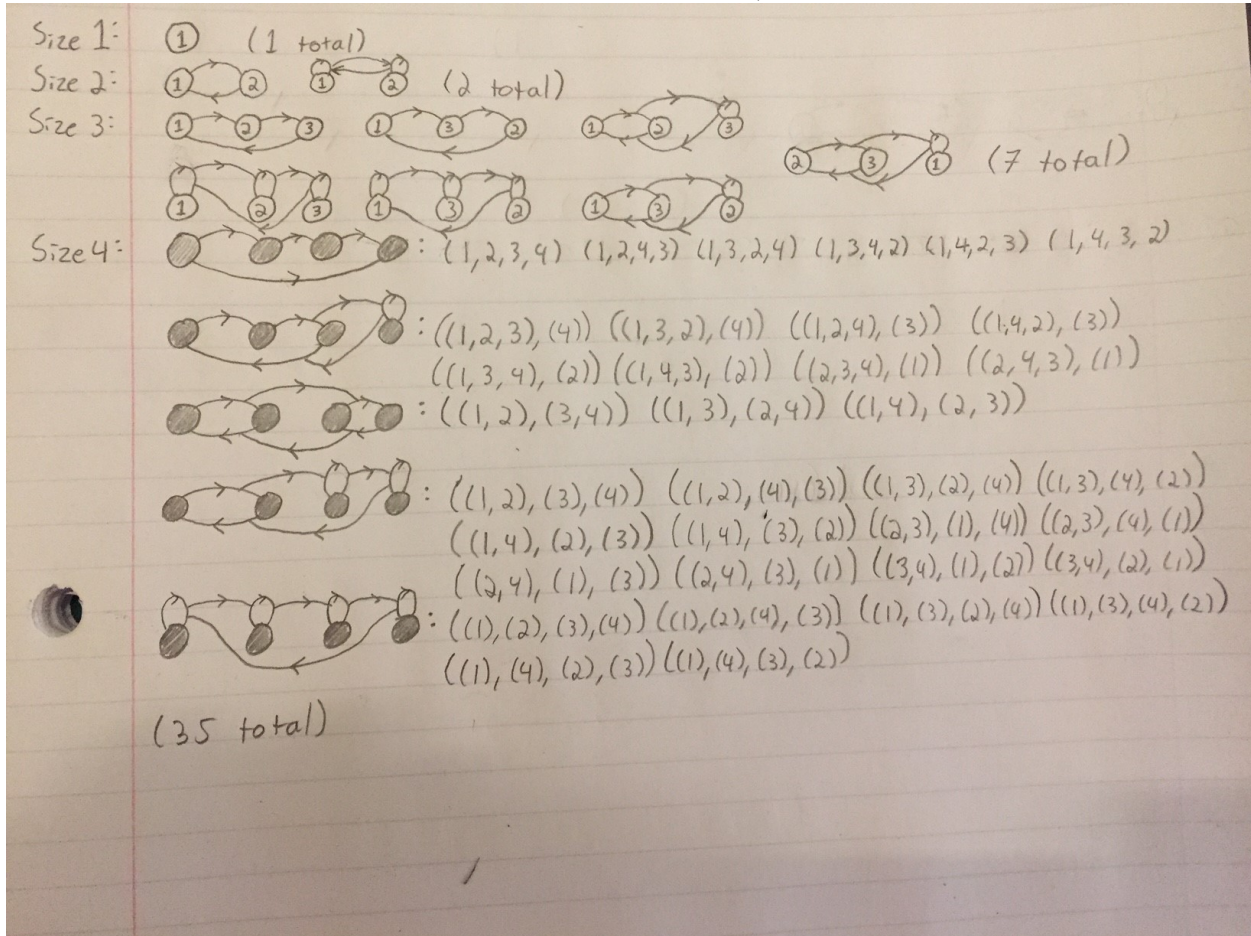 Size 1: 1 (1 total)
Size 2: 1 2 1 2 (2 total)
Size 3: 1 2 3 1 3 2 1 2 3
2 3 1 (7 total)
1 2 3 1 3 2 1 3 2
Size 4: : (1,2,3,4) (1,2,4,3) (1,3,2,4) (1,3,4,2) (1,4,2,3) (1,4,3,2)
: ((1,2,3),(4)) ((1,3,2),(4)) ((1,2,4),(3)) ((1,4,2),(3))
((1,3,4),(2)) ((1,4,3),(2)) ((2,3,4),(1)) ((2,4,3),(1))
: ((1,2),(3,4)) ((1,3),(2,4)) ((1,4),(2,3))
: ((1,2),(3),(4)) ((1,2),(4),(3)) ((1,3),(2),(4)) ((1,3),(4),(2))
((1,4),(2),(3)) ((1,4),(3),(2)) ((2,3),(1),(4)) ((2,3),(4),(1))
((2,4),(1),(3)) ((2,4),(3),(1)) ((3,4),(1),(2)) ((3,4),(2),(1))
: ((1),(2),(3),(4)) ((1),(2),(4),(3)) ((1),(3),(2),(4)) ((1),(3),(4),(2))
((1),(4),(2),(3)) ((1),(4),(3),(2))
(35 total)